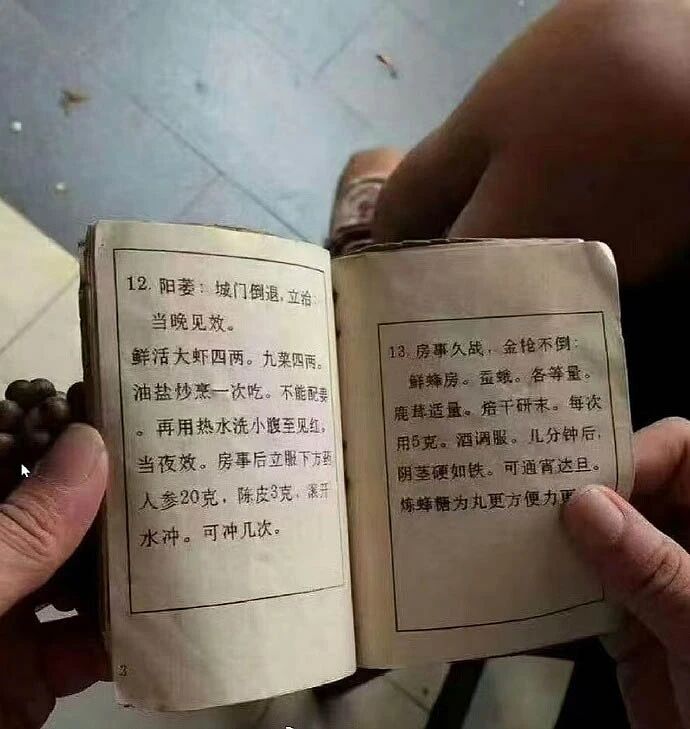 12. 阳萎：城门倒退，立治：
当晚见效。
鲜活大虾四两。九菜四两。
油盐炒烹一次吃。不能配要
。再用热水洗小腹至见红。
当夜效。房事后立服下方药
人参20克，陈皮3克，滚开
水冲。可冲几次。
3
13. 房事久战，金枪不倒：
鲜蜂房。蚕蛾。各等量。
鹿茸适量。焙干研末。每次
用5克。酒调服。几分钟后，
阴茎硬如铁。可通宵达旦。
炼蜂糖为丸更方便力更